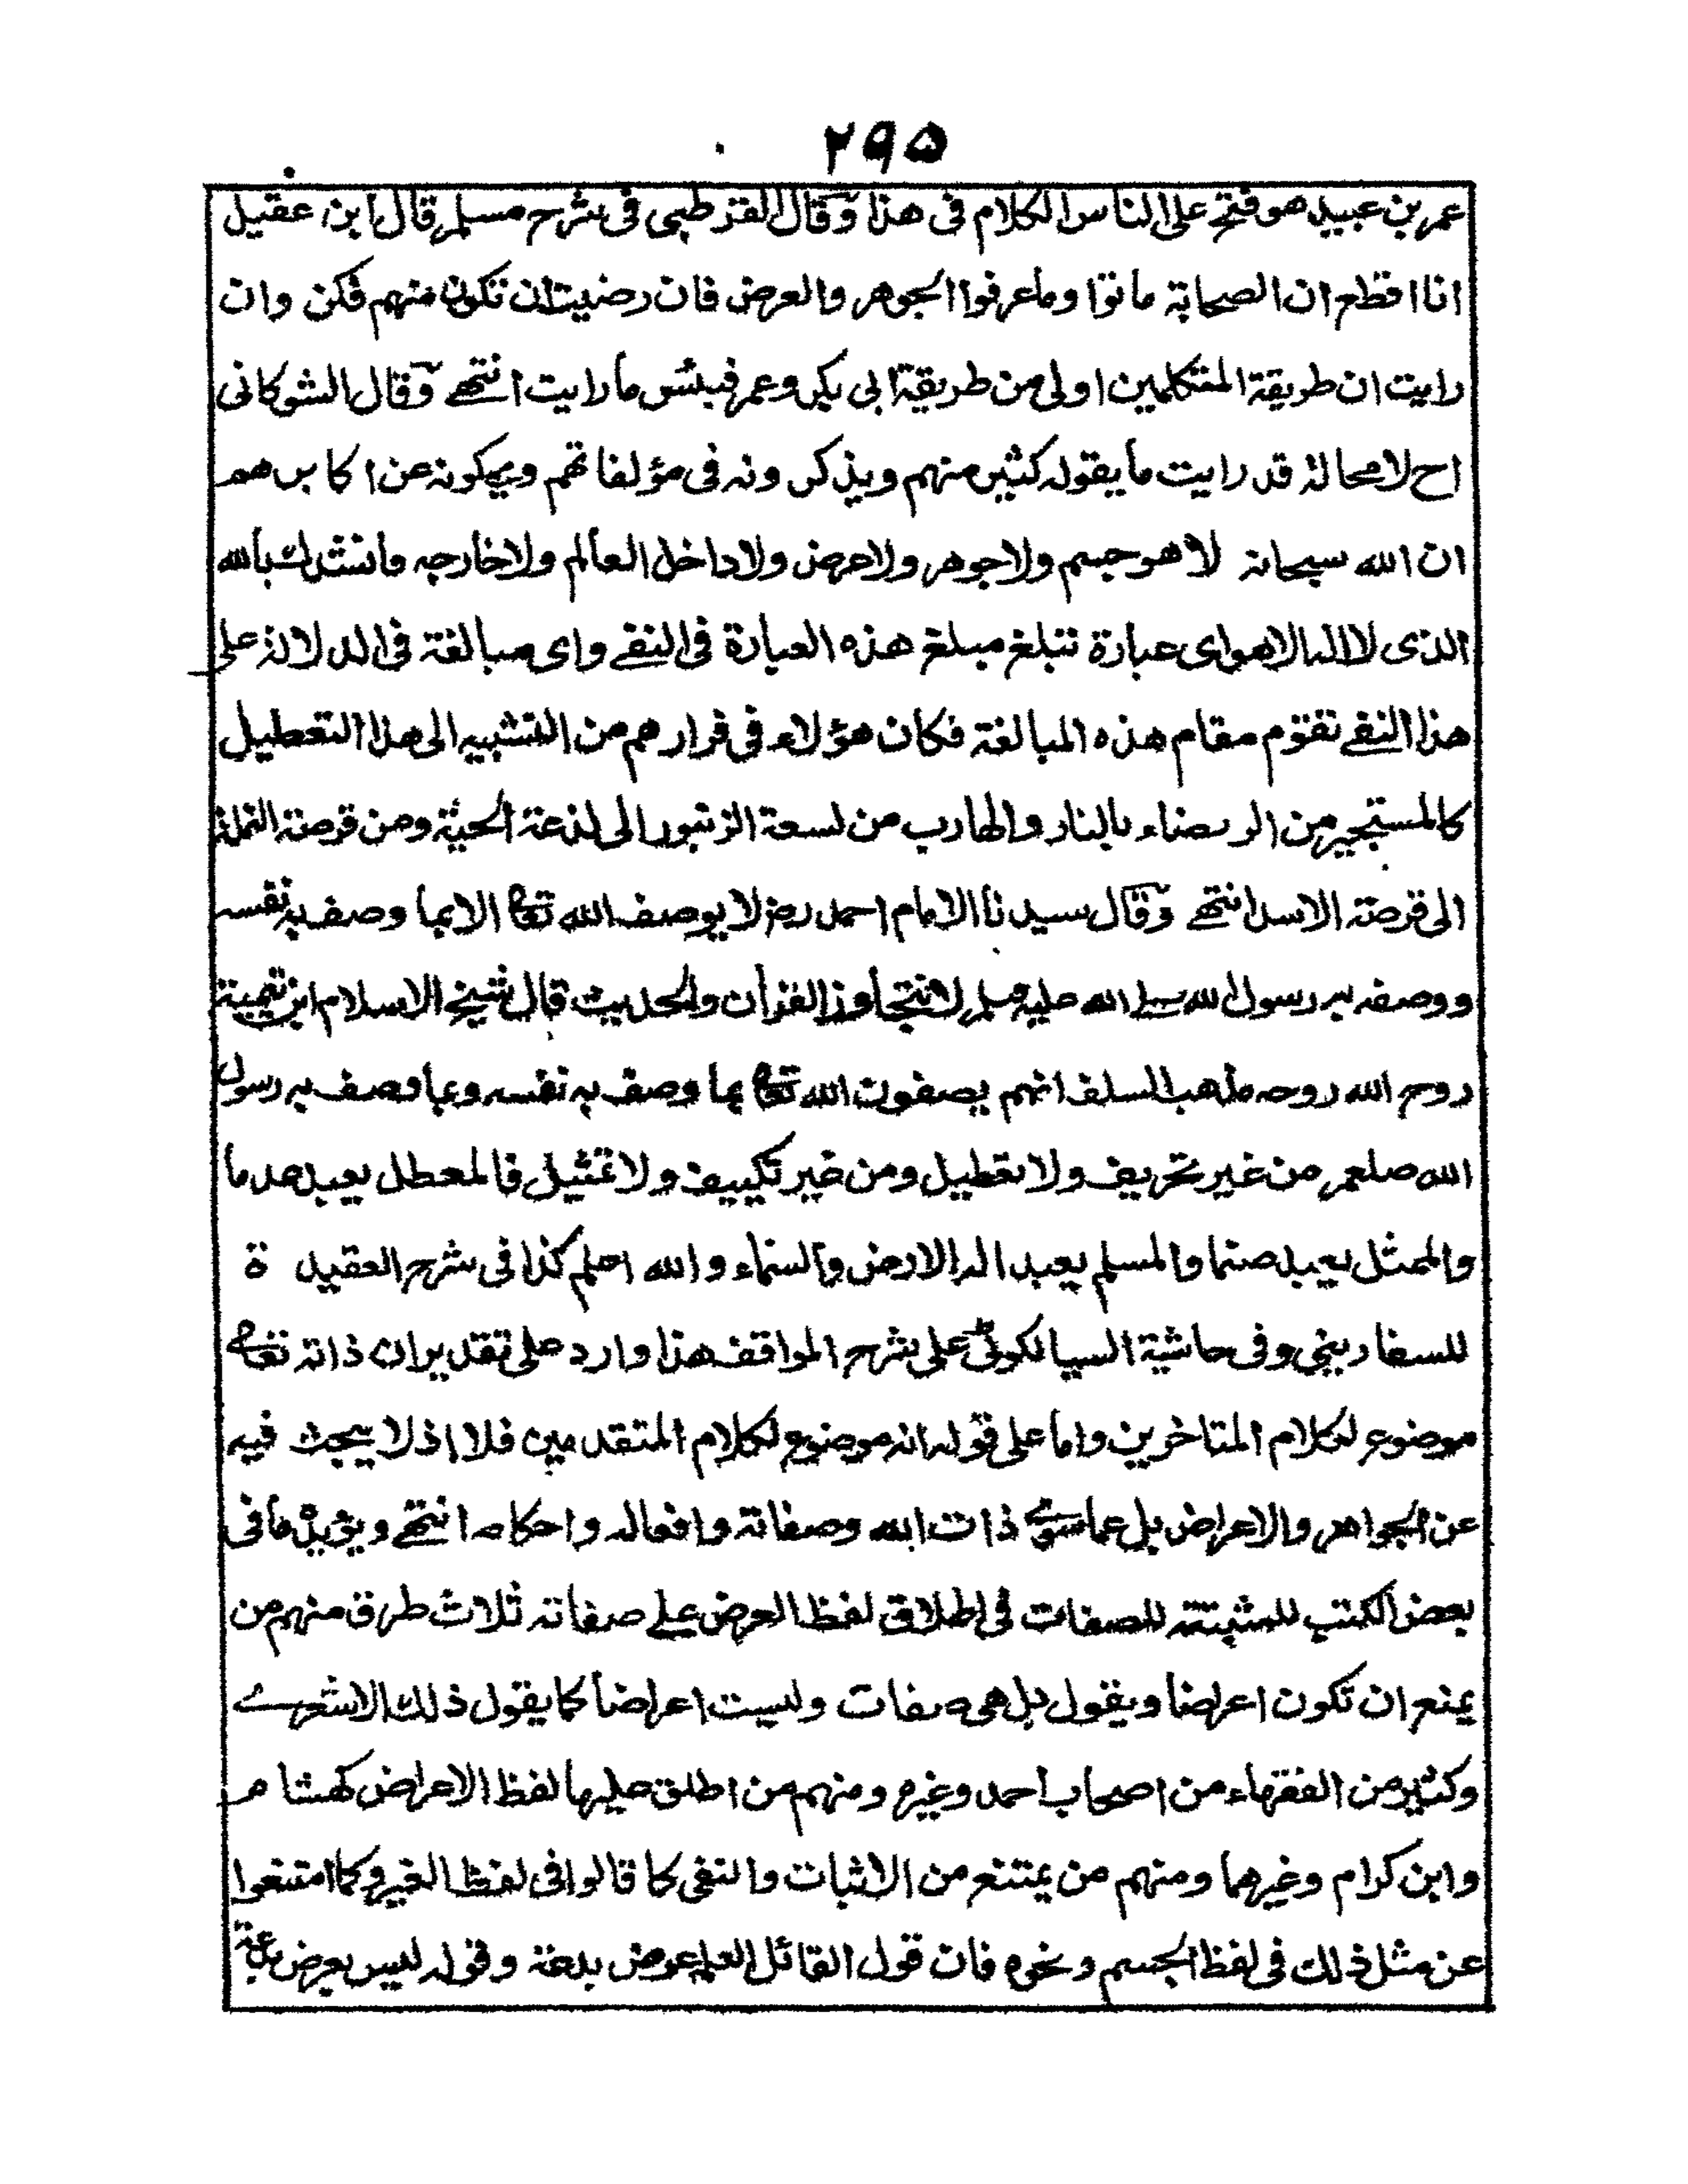 ٢٩٥
عمر بن عبيد هو فتح على الناس الكلام فى هذا وقال القرطبى فى شرح مسلم قال ابن عقيل
انا اقطع ان الصحابة ماتوا وما عرفوا الجوهر والعرض فان رضيت ان تكون منهم فكن وان
رايت ان طريقة المتكلمين اولى من طريقة ابى بكر وعمر فبئس ما رايت انتهے وقال الشوكانى
اح لا محالة قد رايت ما يقوله كثير منهم ويذكرونه فى مؤلفاتهم ويحكونه عن اكابرهم
ان الله سبحانه لا هو جسم ولا جوهر ولا عرض ولا داخل العالم ولا خارجه فانشدك بالله
الذى لا اله الا هو اى عبارة تبلغ مبلغ هذه العبارة فى النفے واى مبالغة فى الدلالة على
هذا النفے تقوم مقام هذه المبالغة فكان هؤلاء فى فرارهم من التشبيه الى هذا التعطيل
كالمستجير من الرمضاء بالنار والهارب من لسعة الزنبور الى لذعة الحية ومن قرصة النملة
الى قرصة الاسد انتهے وقال سيدنا الامام احمد رض لا يوصف الله تعالى الا بما وصف به نفسه
ووصفه به رسول الله صلے الله عليه وسلم لا نتجاوز القرأن والحديث قال شيخ الاسلام ابن تيمية
روح الله روحه مذهب السلف انهم يصفون الله تعالى بما وصف به نفسه وبما وصف به رسول
الله صلعم من غير تحريف ولا تعطيل ومن غير تكييف ولا تمثيل فالمعطل يعبد عدما
والممثل يعبد صنما والمسلم يعبد اله الارض والسماء والله اعلم كذا فى شرح العقيد ة
للسفارينى وفى حاشية السيالكوٹى على شرح المواقف هذا وارد على تقدير ان ذاته تعالے
موضوع لكلام المتاخرين واما على قوله انه موضوع لكلام المتقدمين فلا اذ لا يبحث فيه
عن الجواهر والاعراض بل عما سوے ذات الله وصفاته وافعاله واحكامه انتهے ويؤيده ما فى
بعض الكتب للمثبتة للصفات فى اطلاق لفظ العرض علے صفاته ثلاث طرق منهم من
يمنع ان تكون اعراضا ويقول بل هى صفات وليست اعراضا كما يقول ذلك الاشعرے
وكثير من الفقهاء من اصحاب احمد وغيره ومنهم من اطلق عليها لفظ الاعراض كهشام
وابن كرام وغيرهما ومنهم من يمتنع من الاثبات والنفى كما قالوا فى لفظ الغير وكما امتنعوا
عن مثل ذلك فى لفظ الجسم ونحوه فان قول القائل العلم عرض بدعة وقوله ليس بعرض بدعة